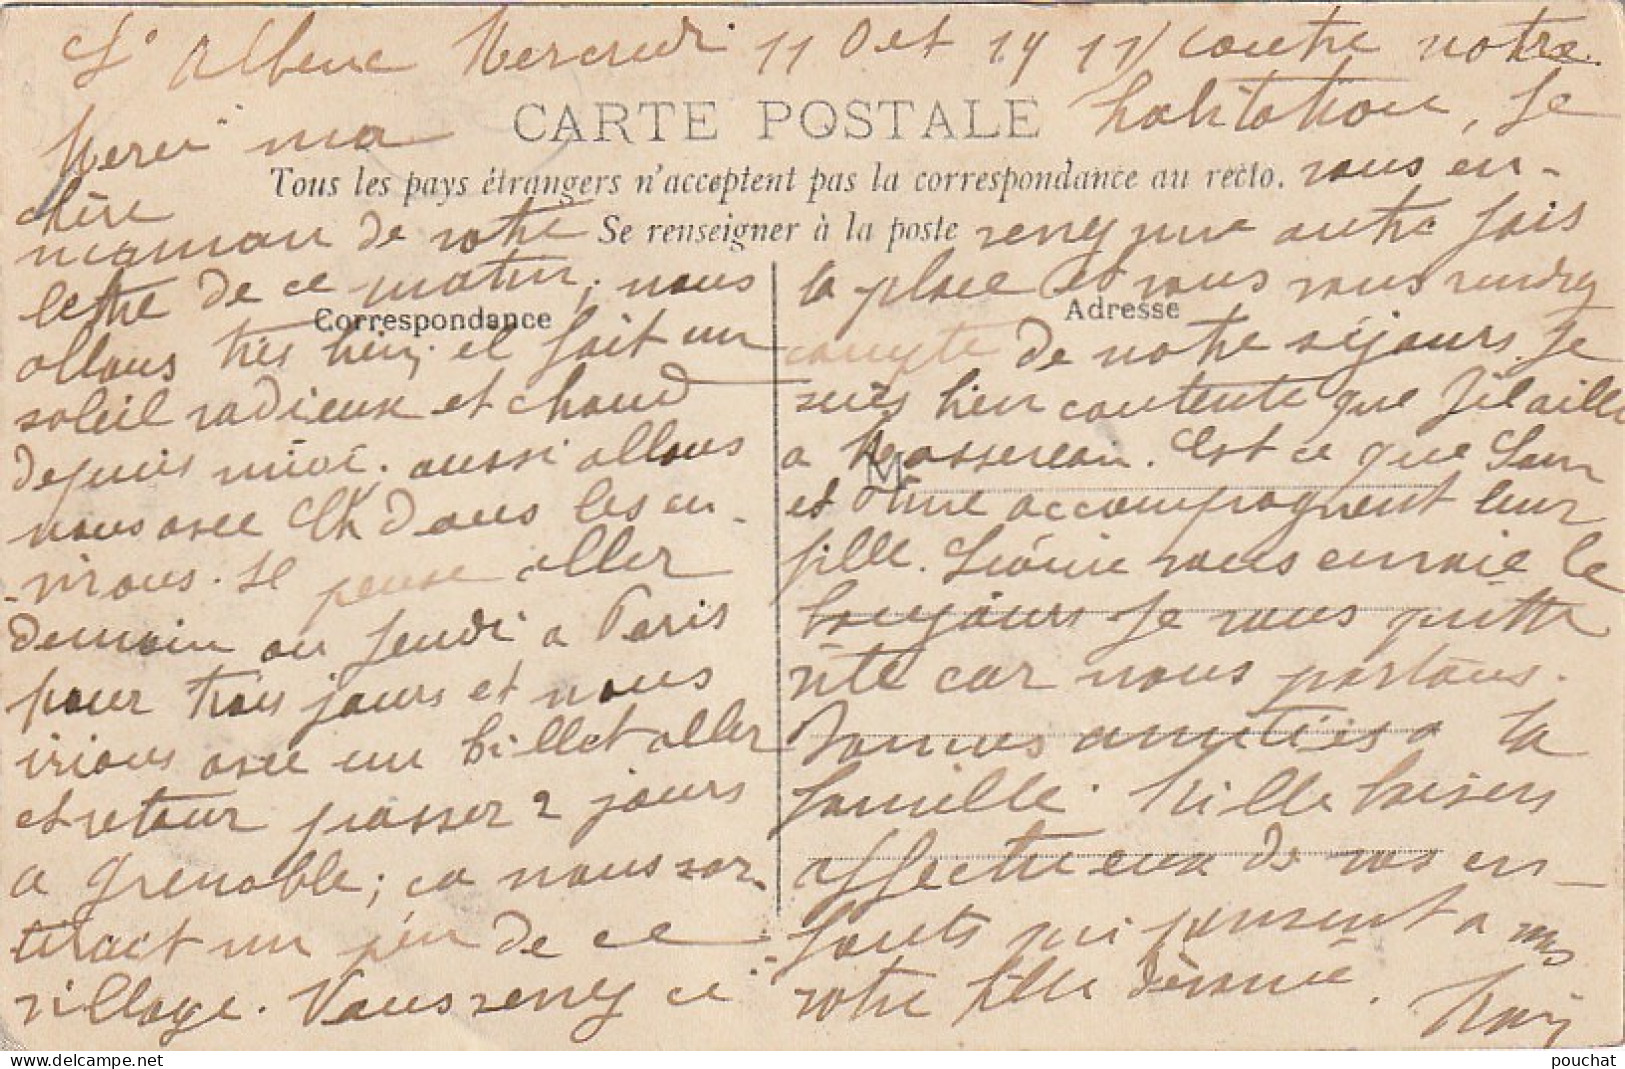 L'Albenc Mercredi 11 Oct 1911
Merci ma
chère
maman de votre
lettre de ce matin, nous
allons très bien, il fait un
soleil radieux et chaud
depuis midi. aussi allons
nous avec Ch dans les en-
-virons. Il pense aller
demain ou Jeudi a Paris
pour trois jours et nous
irions avec un billet aller
et retour passer 2 jours
a Grenoble; ça nous sor-
tirait un peu de ce
village. Vous verrez ci-
contre notre
habitation, Je
vous en-
verrez une autre fois
la place et vous vous rendrez
compte de notre séjours. Je
suis bien contente que aille
a. Est ce que
et accompagnent leur
fille. vous envoie le
toujours Je vous quitte
vite car nous partons.
Bonnes amitiés a la
famille. Mille baisers
affectueux de vos en-
fants qui pensent a vous
votre fille dévouée.
CARTE POSTALE
Tous les pays étrangers n'acceptent pas la correspondance au recto.
Se renseigner à la poste
Correspondance
Adresse
M
pouchat